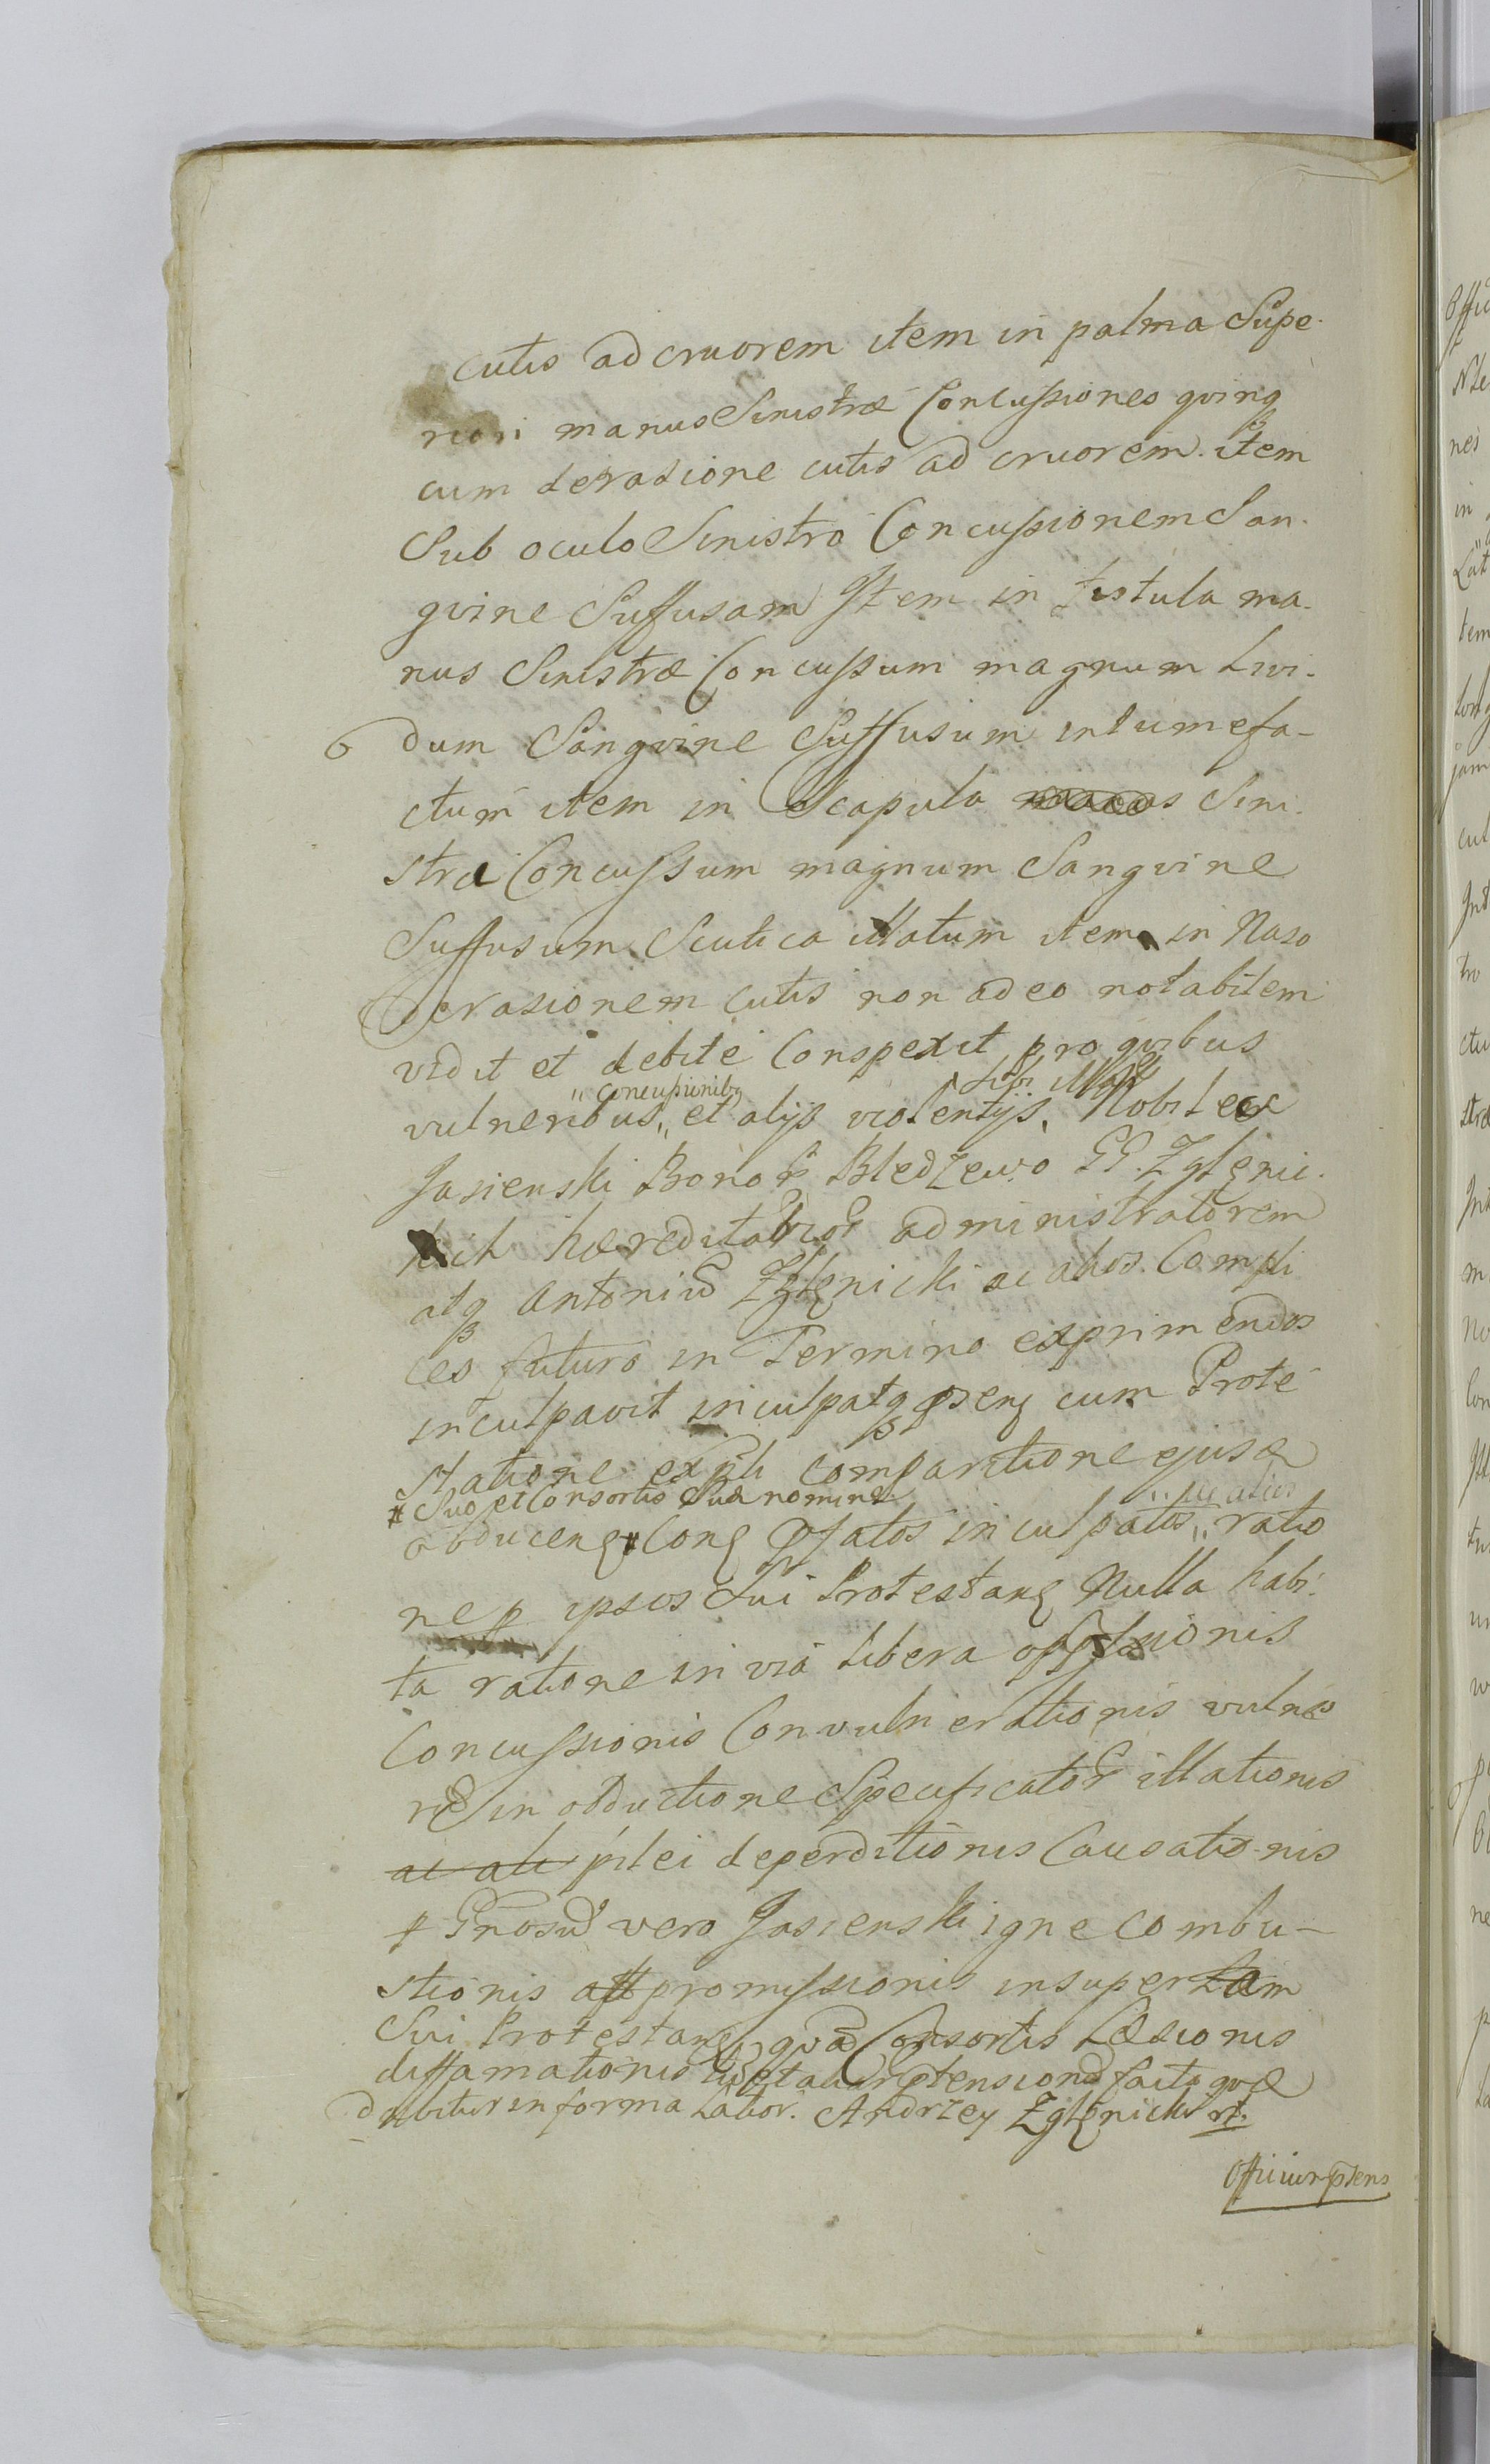 cutis ad cruorem item in palma Supe-
riori manus Sinistræ Concussiones qvinq
cum derasione cutis ad cruorem. item
Sub oculo Sinistro Concussionem San-
gvine Suffusam Item in fistula ma-
nus Sinistræ Concussum magnum Livi-
6 dum Sangvine Suffusum intumefa-
ctum item in Scapula Sini-
stra Concussum magnum Sangvine
Suffusum Scutica illatum item in Naso
derasionem cutis non adeo notabilem
vidit et debite Conspexit pro qvibus
" concussionib9 sibi illat
vulneribus " et alijs violentijs, Nobilem
Jasienski Bonor Bledzewo GG. Zglenic-
kich hæreditarior administratorem
atq Antoniu Zglenicki ac alios Compli
ces futuro in Termino exprimendos
inculpavit inculpatq psens cum Prote
statione expti comparitione ejusd
# Suo et Consortis Suæ nomine " ac alios
obducens # Cons pfatos inculpatos " ratio
ne p ipsos Sui Protestans Nulla habi-
ta ratione in via libera oppressionis
Concussionis Convulnerationis vulne
ru in obductione Specificator illationis
ac ali pilei deperditionis Causationis
# Gnosu vero Jasienski igne combu-
stionis appromissionis insuper tam
Sui Protestans qvā Consortis Læsionis
diffamationis ptensione facto qvæ
dabitur in forma Lation. Andrzey Zglenicki mp.
Officium psens